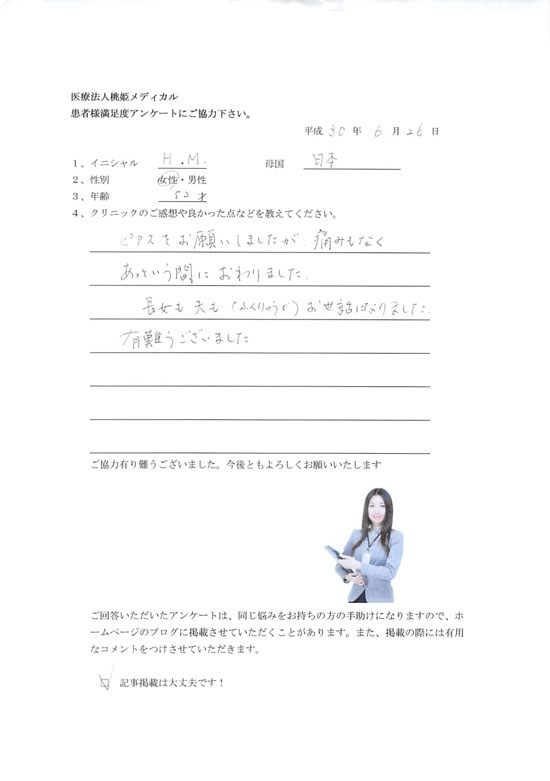 医療法人桃姫メディカル
患者様満足度アンケートにご協力下さい。
平成 30 年 6 月 26 日
1、イニシャル H.M. 母国 日本
2、性別 女性・男性
3、年齢 52 才
4、クリニックのご感想や良かった点などを教えてください。
ピアスをお願いしましたが、痛みもなく
あっという間におわりました。
長女も夫も(ふんりゅうで)お世話になりました。
有難うございました
ご協力有り難うございました。今後ともよろしくお願いいたします
ご回答いただいたアンケートは、同じ悩みをお持ちの方の手助けになりますので、ホ
ームページのブログに掲載させていただくことがあります。また、掲載の際には有用
なコメントをつけさせていただきます。
記事掲載は大丈夫です!